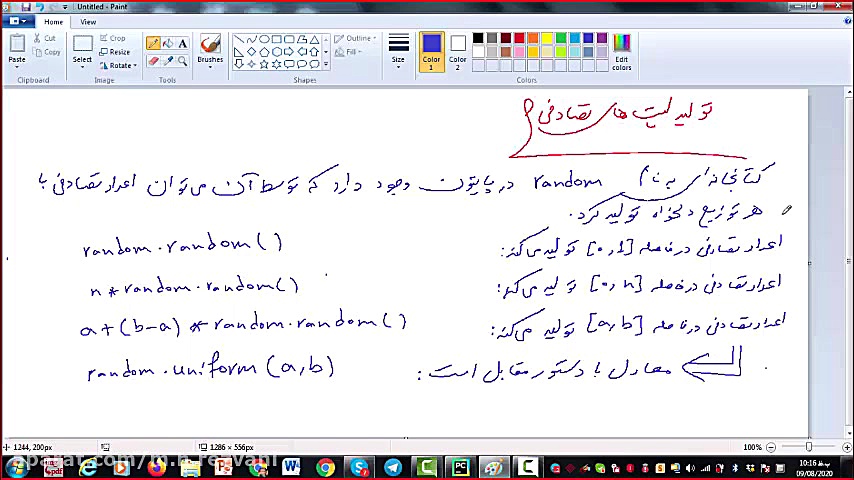 Untitled - Paint
Home View
Cut
Copy
Paste
Clipboard
Crop
Resize
Rotate
Select
Image
Tools
Brushes
Outline
Fill
Shapes
Size
Color 1
Color 2
Colors
Edit colors
تولید لیست های تصادفی
کتابخانه‌ای به نام random در پایتون وجود دارد که توسط آن می‌توان اعداد تصادفی با
هر توزیع دلخواه تولید کرد.
اعداد تصادفی در فاصله [0,1] تولید می‌کند: random.random()
اعداد تصادفی در فاصله [0,n] تولید می‌کند: n*random.random()
اعداد تصادفی در فاصله [a,b] تولید می‌کند: a+(b-a)*random.random()
معادل با دستور مقابل است: random.uniform(a,b)
1244, 200px
1286 × 556px
100%
10:16 ب.ظ
09/08/2020